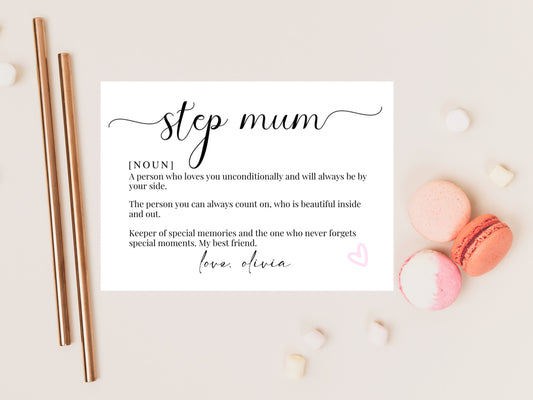 step mum
[NOUN]
A person who loves you unconditionally and will always be by
your side.
The person you can always count on, who is beautiful inside
and out.
Keeper of special memories and the one who never forgets
special moments. My best friend.
love, olivia